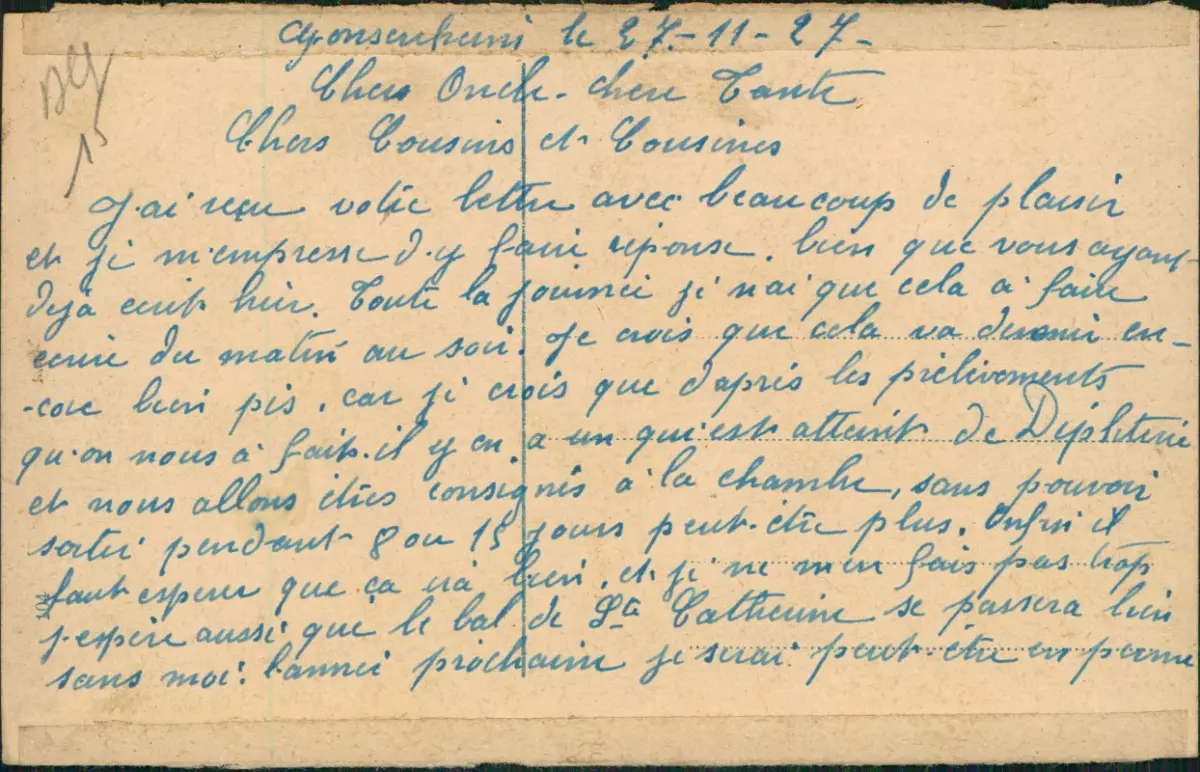 Gonsenheim le 27-11-27-
Chers Oncle - chère Tante
Chers Cousins et Cousines
J'ai reçu votre lettre avec beaucoup de plaisir
et je m'empresse d'y faire réponse, bien que vous ayant
déjà écrit hier. Toute la journée je n'ai que cela à faire
écrire du matin au soir. Je crois que cela va devenir en-
-core bien pis, car je crois que d'après les prélèvements
qu'on nous à fait il y en a un qui est atteint de Diphterie
et nous allons êtres consignés à la chambre, sans pouvoir
sortir pendant 8 ou 15 jours peut-être plus. Enfin il
faut espérer que ça irà bien, et je ne m'en fais pas trop
j'espère aussi que le bal de Ste Catherine se passera bien
sans moi. l'année prochaine je serai peut-être en perme
15
104